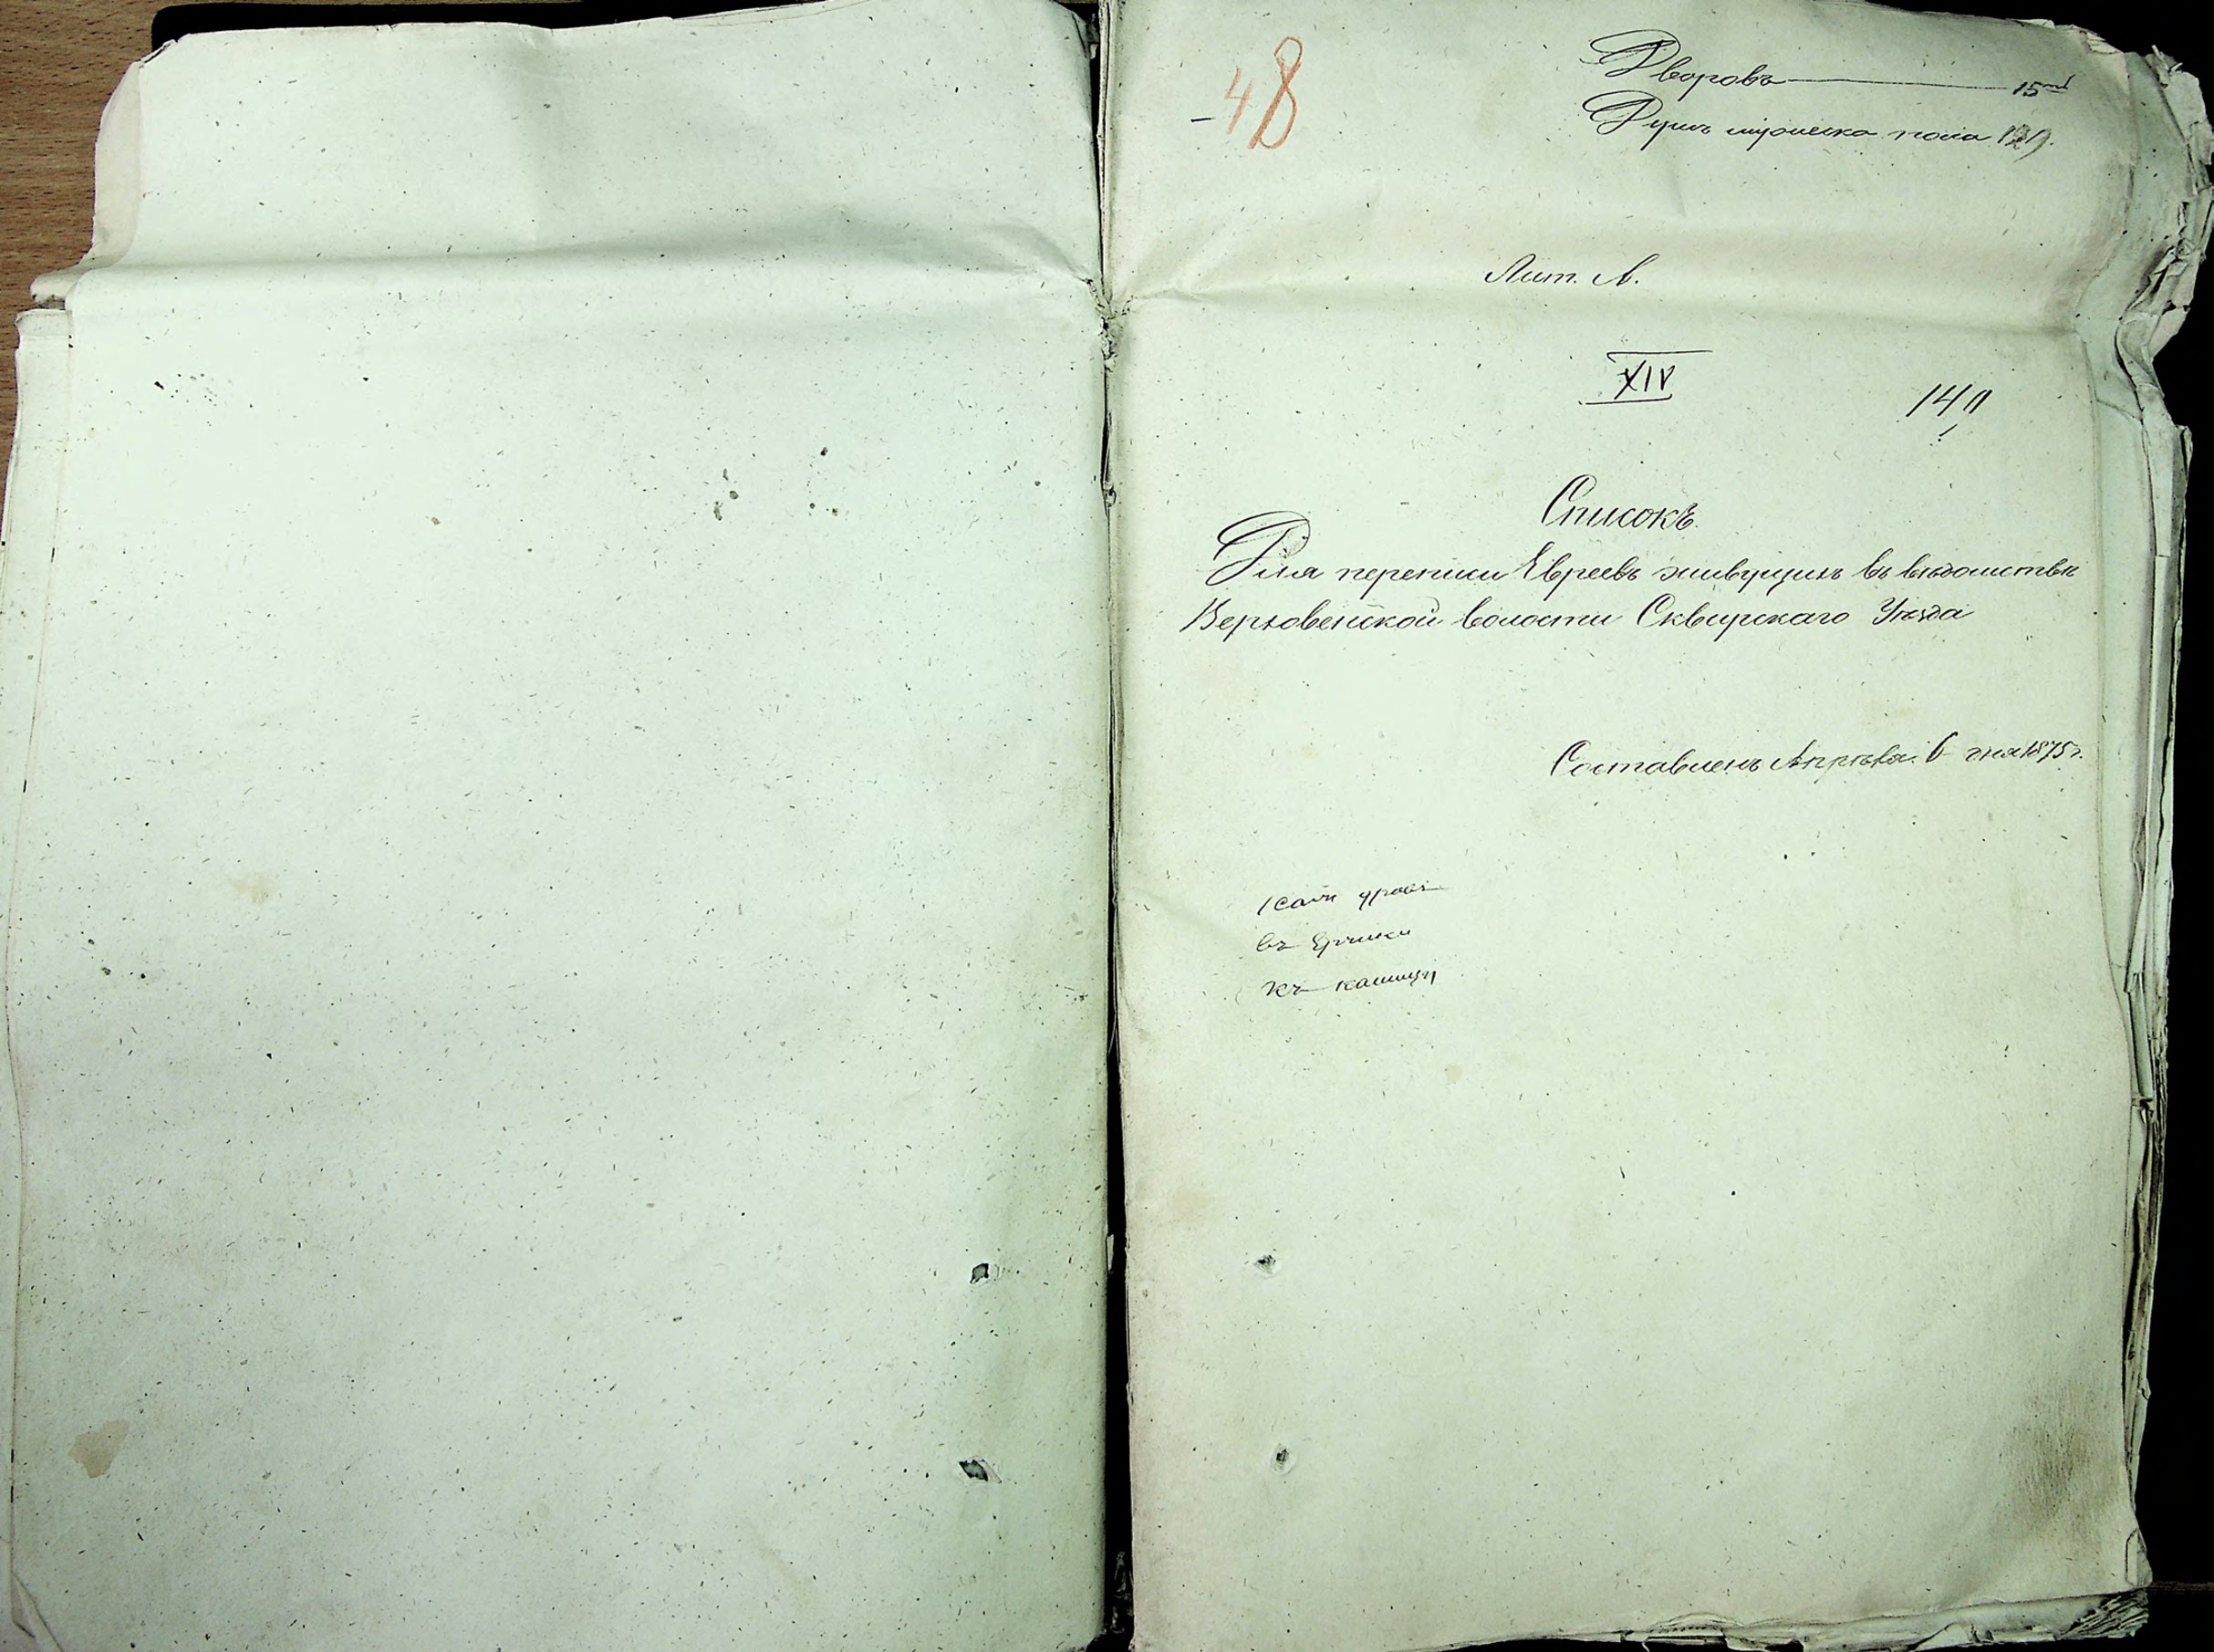 48
Дворовъ 15
Душъ мужеска пола
Лит. А.
XIV
Списокъ
Для переписи Евреевъ живущихъ въ вѣдомствѣ
Верховенской волости Сквирскаго Уѣзда
Составленъ Апрѣля 6 дня 1875 г.
въ
къ